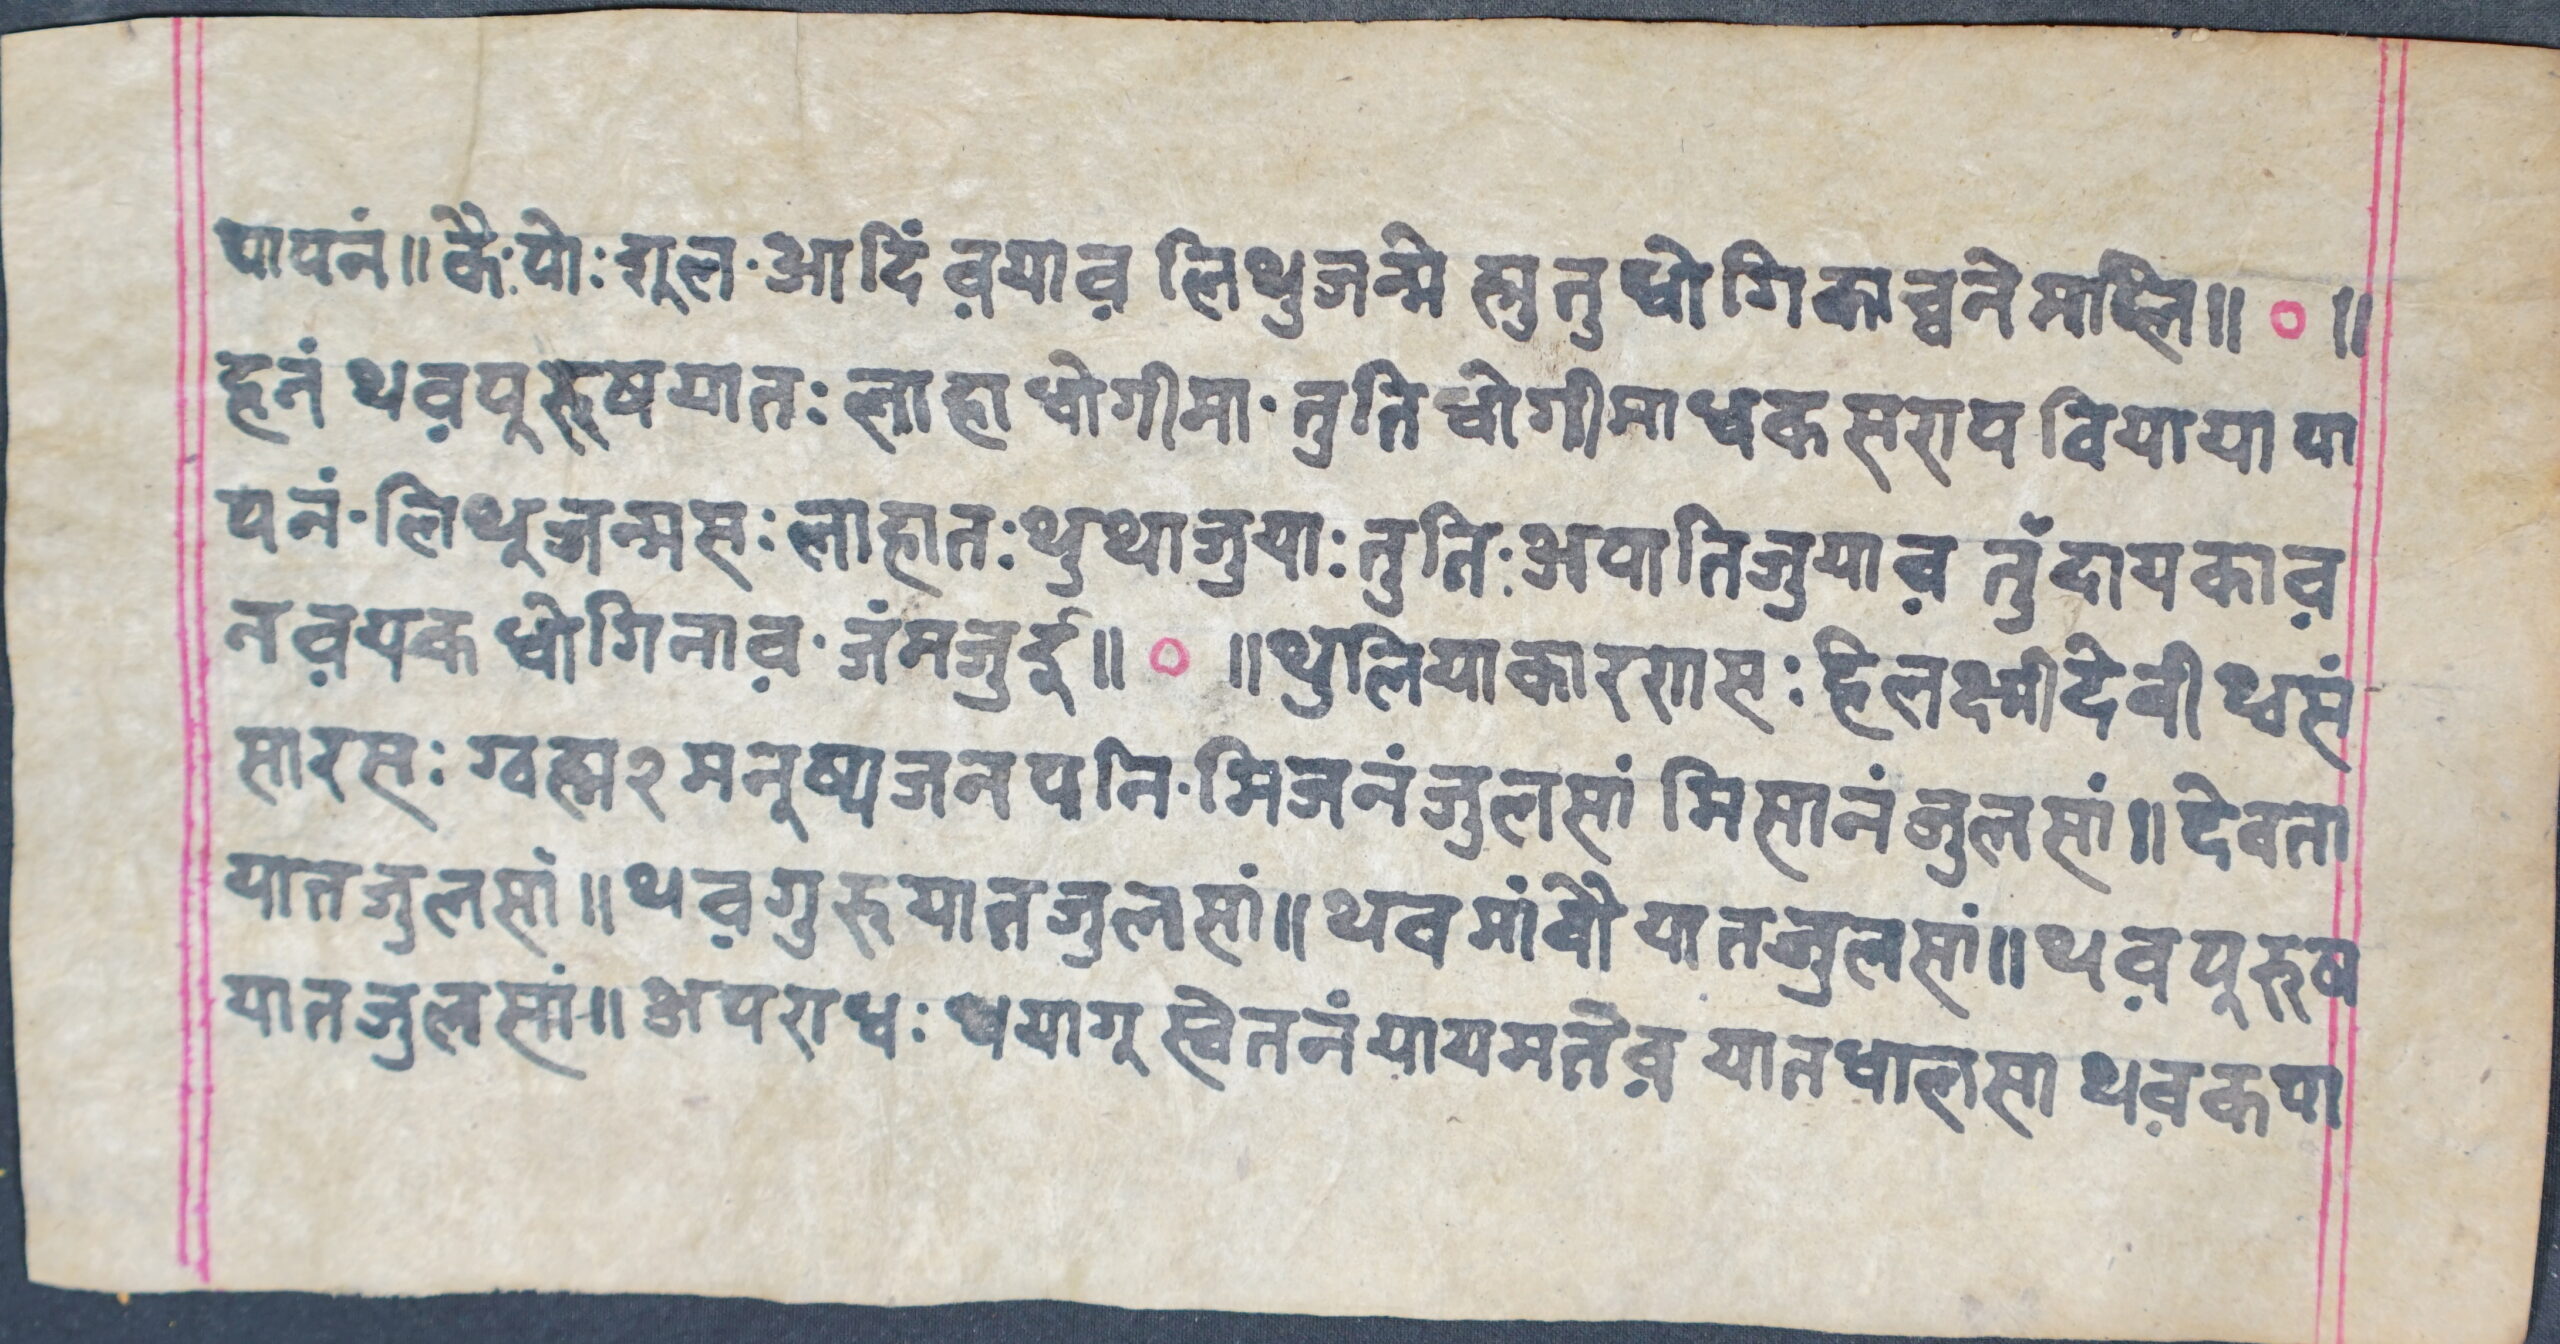 पापनं॥ कै·पोः शूल·आदिं वयाव लिथुजन्मे ह्मुतु ध्वोगि काच्वने मालि॥ ० ॥
ह्नं थवपुरुषयातः लाहा ध्वोगीमा·तुति ध्वोगीमा धक सराप वियाया पा
पनं·लिथुजन्मसः लाहातः थुथाजुयाः तुतिः अपातिजुयाव तुँदायकाव
नवयक ध्वोगिनाव·जंमजुई॥ ० ॥ थुलियाकारणसः हेलक्ष्मीदेवी थ्वसं
सारसः ग्वह्म२ मनुष्यजनपनि·मिजनंजुलसां मिसानंजुलसां॥ देवता
यातजुलसां॥ थवगुरुयातजुलसां॥ थवमांवौ यातजुलसां॥ थवपुरुष
यातजुलसां॥ अपराधः धयागू स्वेतनं यायमतेव यातधालसा थवकपा